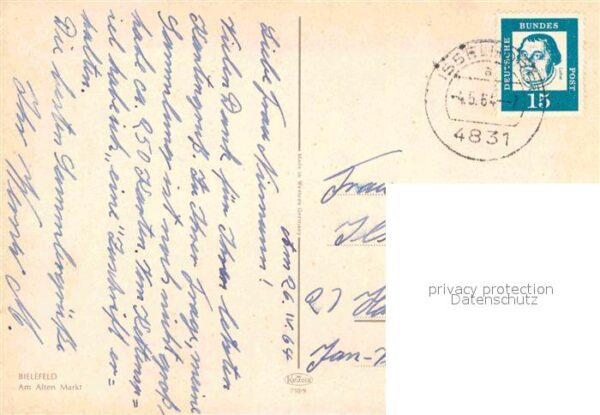 Am 26. IV. 64
Liebe Frau Niemann!
Vielen Dank für Ihren letzten
Kartengruß. Zu Ihrer Frage, meine
Sammlung ist noch nicht groß,
habe ca. 250 Karten. Vom
ich eine Zuschrift er=
halten.
Die besten Sammlergrüße
Ihr
BIELEFELD
Am Alten Markt
Made in Western Germany
Krüger
DEUTSCHE
BUNDES
POST
15
-4.5.64
4831
Frau
21 Ha
Jan-
privacy protection
Datenschutz